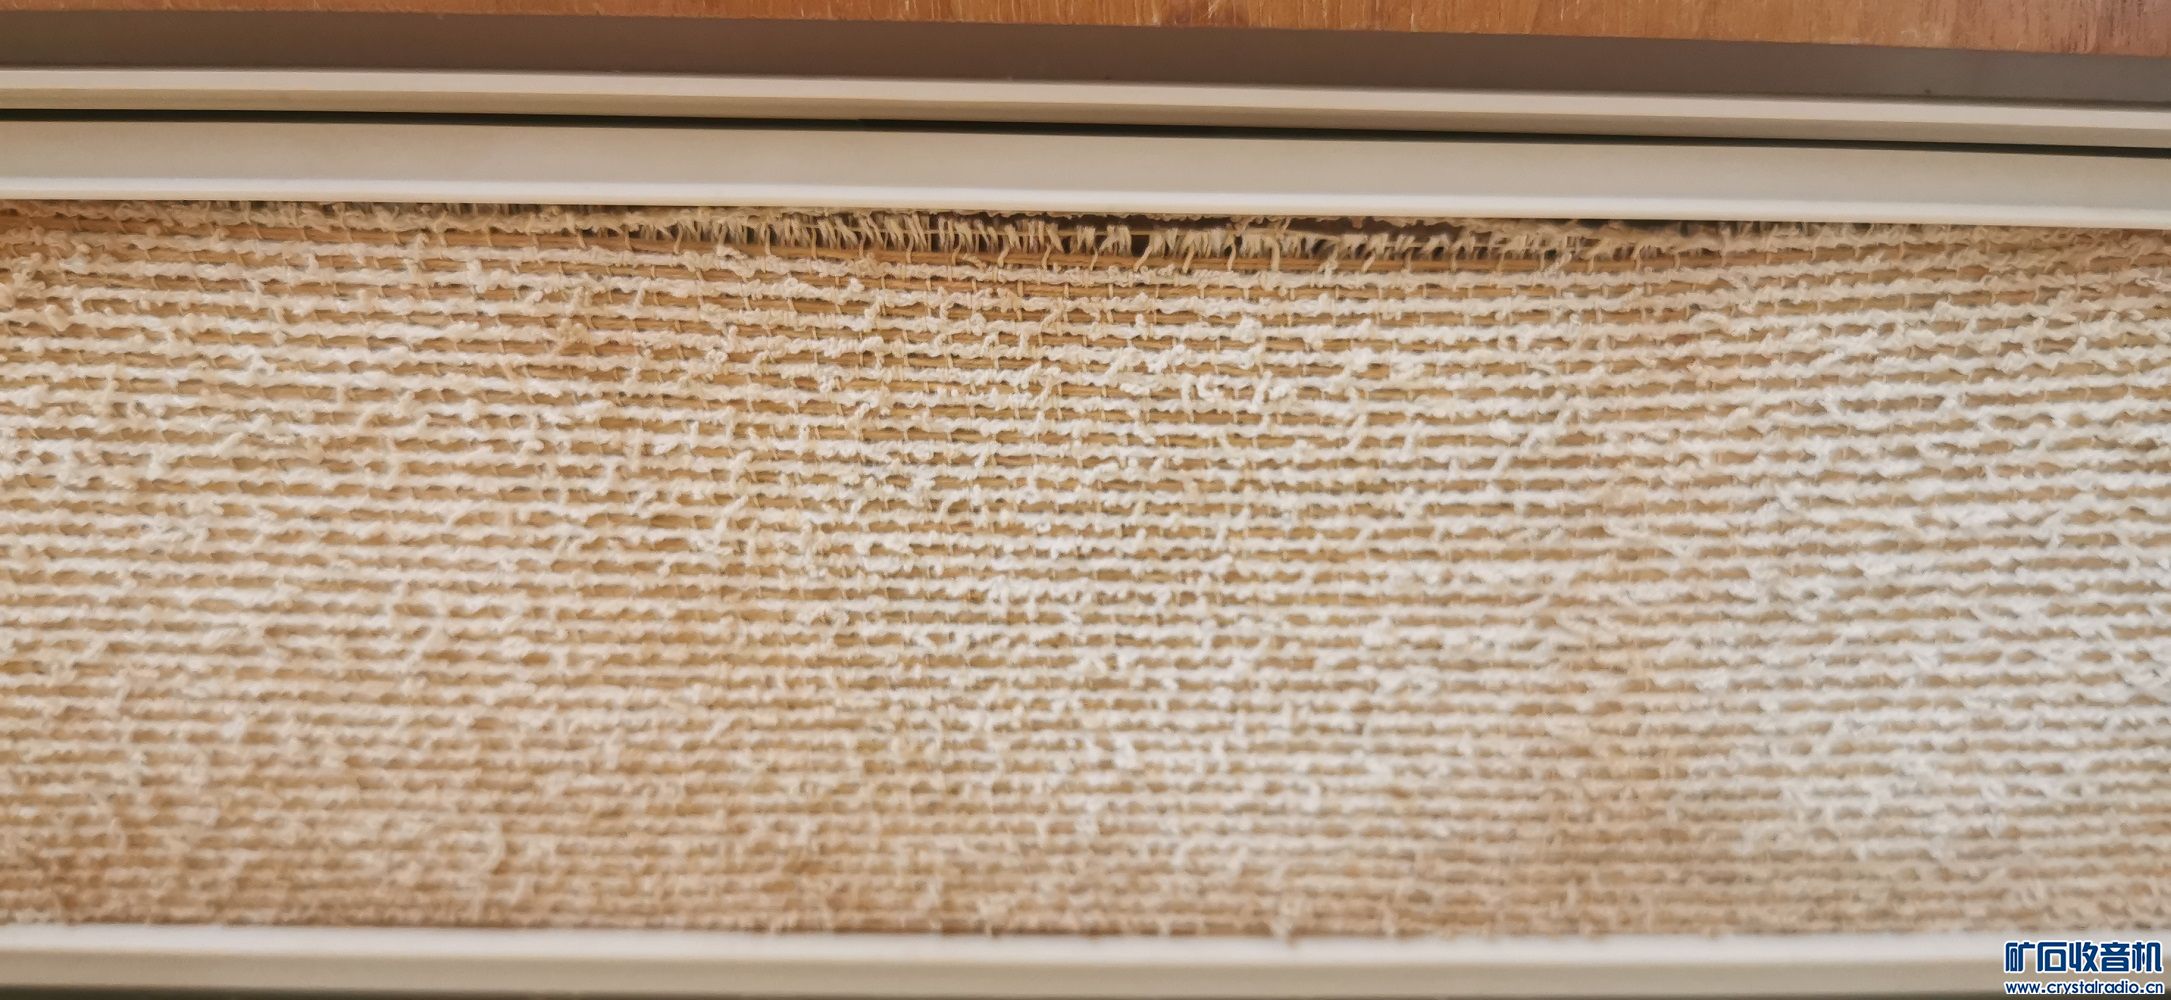 矿石收音机
www.crystalradio.cn